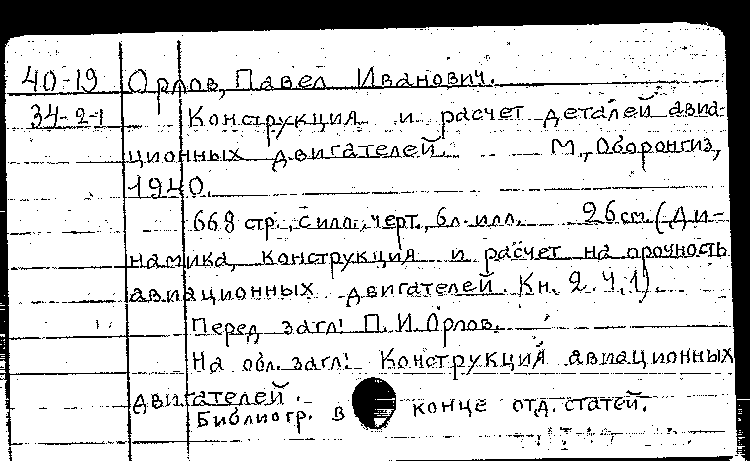 40-19 Орлов, Павел Иванович.
34-2-1 Конструкция и расчет деталей авиа-
ционных двигателей. М., Оборонгиз,
1940.
668 стр., с илл., черт., 6 л. илл. 26 см. (Ди-
намика, конструкция и расчет на прочность
авиационных двигателей. Кн. 2. Ч. 1).
Перед загл: П. И. Орлов.
На обл. загл: Конструкция авиационных
двигателей.
Библиогр. в конце отд. статей.